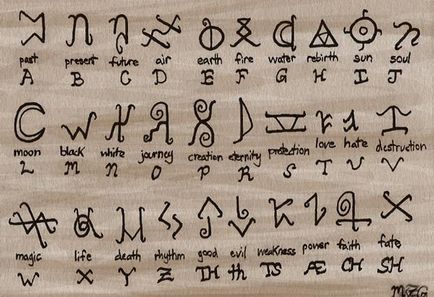 past present future air earth fire water rebirth sun soul
A B C D E F G H I J
moon black white journey creation eternity protection love hate destruction
L M N O P R S T U V
magic life death rhythm good evil weakness power faith fate
W X Y Z TH th TS Æ CH SH
MZG